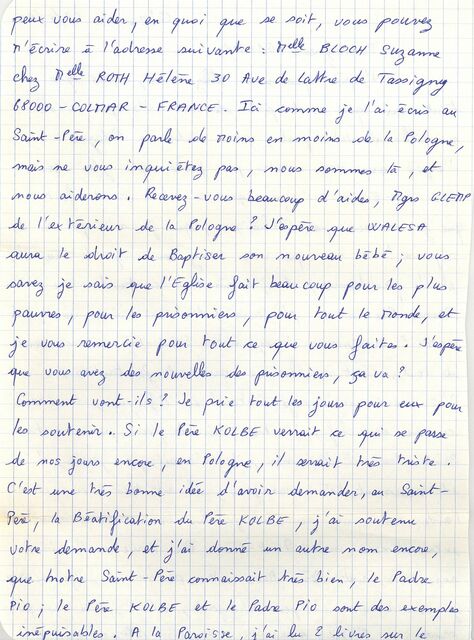 peux vous aider, en quoi que se soit, vous pouvez
m'écrire à l'adresse suivante : Melle BLOCH Suzanne
chez Melle ROTH Hélène 30 Ave de Lattre de Tassigny
68000 - COLMAR - FRANCE. Ici comme je l'ai écris au
Saint-Père, on parle de moins en moins de la Pologne,
mais ne vous inquiétez pas, nous sommes là, et
nous aiderons. Recevez-vous beaucoup d'aides, Mgrs GLEMP
de l'extérieur de la Pologne ? J'espère que WALESA
aura le droit de Baptiser son nouveau bébé ; vous
savez je sais que l'Eglise fait beaucoup pour les plus
pauvres, pour les prisonniers, pour tout le monde, et
je vous remercie pour tout ce que vous faites. J'espère
que vous avez des nouvelles des prisonniers, ça va ?
Comment vont-ils ? Je prie tout les jours pour eux pour
les soutenir. Si le Père KOLBE verrait ce qui se passe
de nos jours encore, en Pologne, il serait très triste.
C'est une très bonne idée d'avoir demander, au Saint-
Père, la Béatification du Père KOLBE, j'ai soutenu
votre demande, et j'ai donné un autre nom encore,
que notre Saint-Père connaissait très bien, le Padre
PIO ; le Père KOLBE et le Padre PIO sont des exemples
inépuisables. A la Paroisse, j'ai lu 2 livres sur le